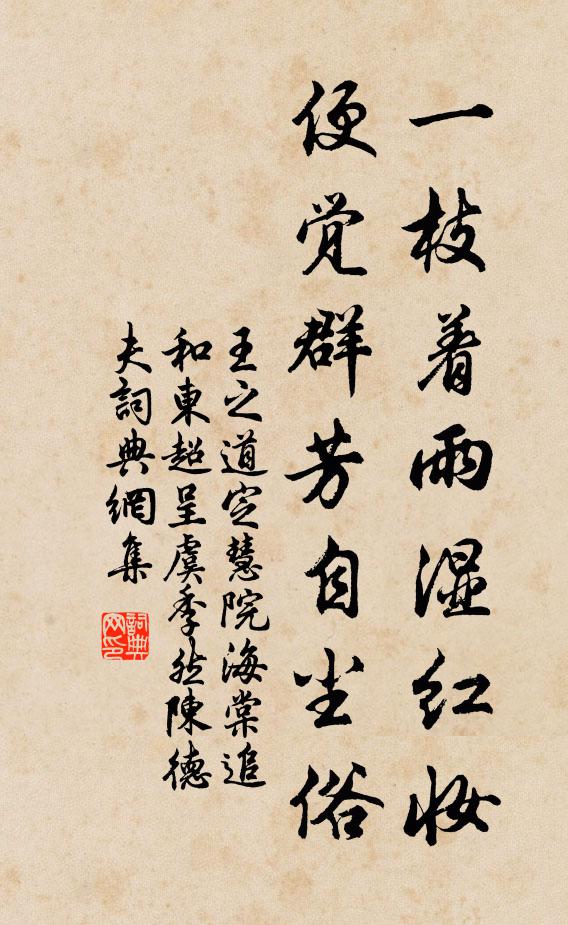 一枝着雨湿红妆
便觉群芳自尘俗
王之道定慧院海棠追
和東超呈虞季然陳德
夫詞典網集
詞典网印